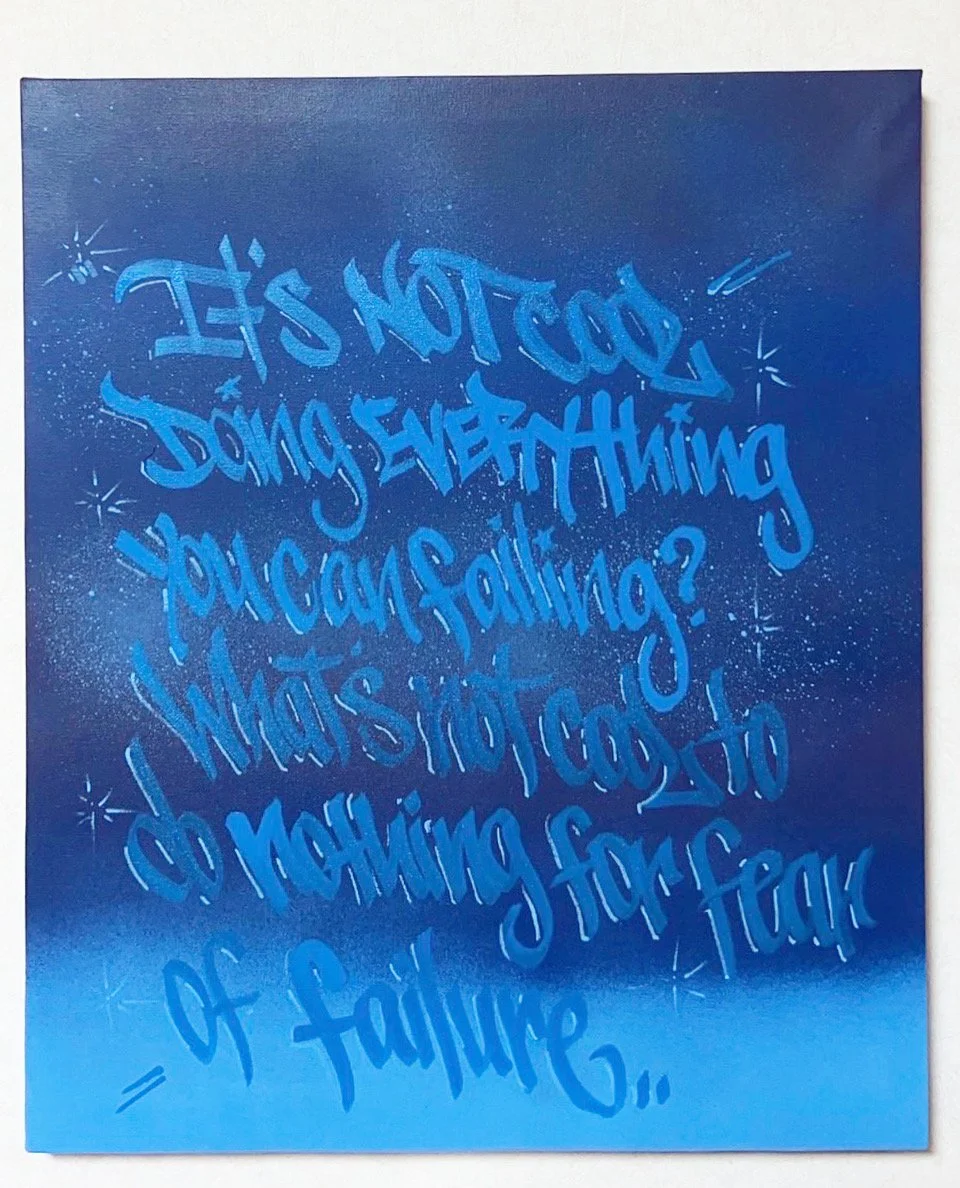 It's NOT cool
Doing EVERYthing
you can failing?
What's not cool to
do nothing for fear
of failure..